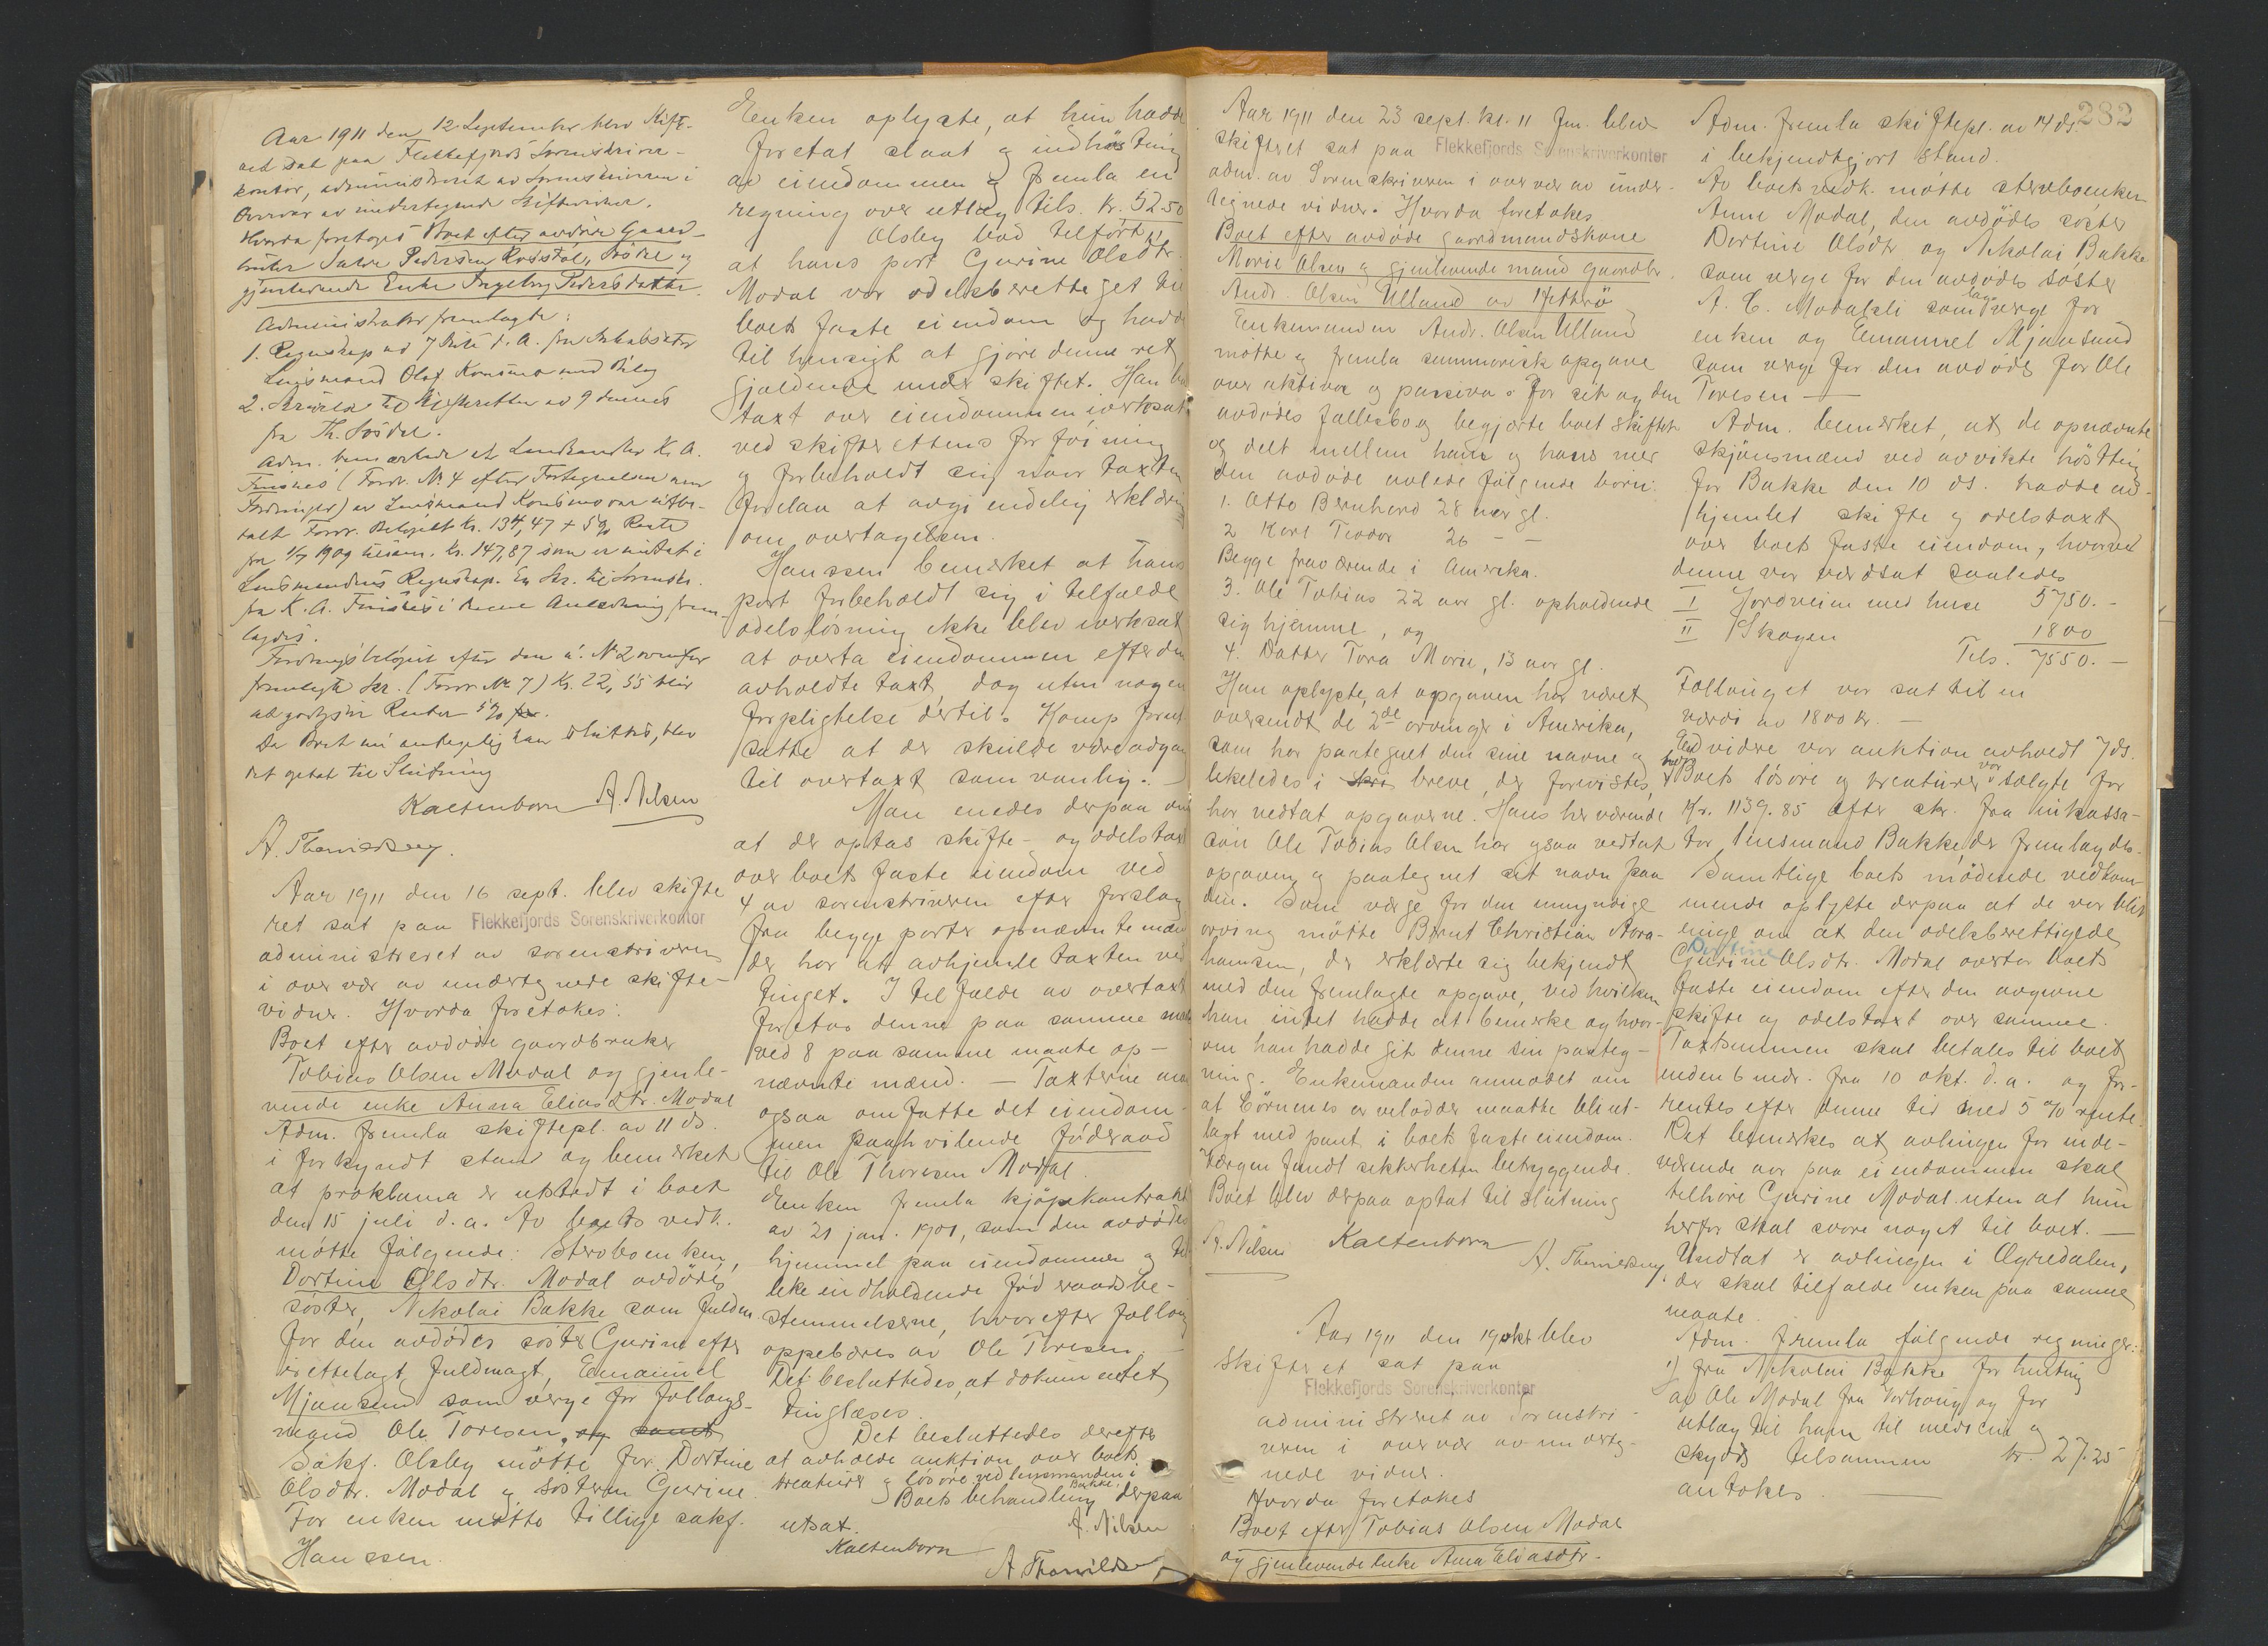 Aar 1911 den 12 September blev Skifte-
ret sat paa Flekkefjords Sorenskriver-
kontor, administreret av Sorenskriveren i
Overvær av undertegnede Skiftevidner.
Hvorda foretoges Boet efter avdøde Gaard-
bruker Salve Pedersen og
gjenlevende Enke Ingeborg Pedersdatter.
Administrator fremlagte:
1. Regnskap ad 7 d. A. fra Inkassator
Lensmand Olaf Konsmo med Bilag
2. Skrivelse til Skifteretten av 9 dennes
fra Th.
Adm. bemærkede at Landhandler K. A.
Finsnes (Fordr. No. 4 efter Fortegnelsen over
Fordringer) av Lensmand Konsmo var utbe-
talt Fordr. Beløpet Kr. 134,47 + 5% Rente
fra 1/7 1909 tilsam. Kr. 147,87 som er i
Lensmandens Regnskap. En Skr. til Sorenskr.
fra K. A. Finsnes i denne Anledning frem-
lagdes.
Fordringsbeløpet efter den u. No 2 ovenfor
fremlagte Skr. (Fordr No 7) Kr. 22,55 blir
at godtgjøre Renter 5%
Da Boet nu antagelig kan sluttes, blev
det optat til Slutning
Kaltenborn A. Nilsen
A. Thorvildsen.
Aar 1911 den 16 sept. blev skifte
ret sat paa Flekkefjords Sorenskriverkontor
administreret av sorenskriveren
i overvær av undertegnede skifte-
vidner. Hvorda foretokes:
Boet efter avdøde gaardbruker
Tobias Olsen Modal og gjenle-
vende enke Anna Eliasdtr. Modal
Adm. fremla skiftepl. av 11 ds.
i forkyndt stand og bemerket
at proklama er utstedt i boet
den 15 juli d.a. Av boets vedk.
møtte følgende: Sterboenken,
Dortine Olsdtr. Modal avdødes
søster, Nikolai Bakke som fuldm.
for den avdødes søster Gurine efter
irettelagt fuldmagt, Emanuel
Mjaasund som verge for follaugs-
mand Ole Toresen, og samt
Sakf. Olsby møtte for Dortine
Olsdtr. Modal og søsteren Gurine
For enken møtte tillige sakf.
Hanssen.
Enken oplyste, at hun hadde
foretat slaat og indhøstning
av eiendommen og fremla en
regning over utlæg tils. kr. 52.50
Olsby bad tilført,
at hans part Gurine Olsdtr.
Modal var odelsberettiget til
boets faste eiendom og hadde
til hensigt at gjøre denne ret
gjældende under skiftet. Han
taxt over eiendommen iverksat
ved skifterettens forføining
og forbeholdt sig naar taxten
forelaa at avgi endelig erklæring
om overtagelsen.
Hanssen bemerket at hans
part forbeholdt sig i tilfælde
odelsløsning ikke blev iverksat
at overta eiendommen efter den
avholdte taxt, dog uten nogen
forpligtelse dertil. Komp. forut-
satte at der skulde være adgang
til overtaxt som vanlig. —
Man enedes derpaa om
at der optas skifte- og odelstaxt
over boets faste eiendom ved
4 av sorenskriveren efter forslag
fra begge parter opnævnte mænd
der har at avhjemle taxten ved
tinget. I tilfælde av overtaxt
foretas denne paa samme maate
ved 8 paa samme maate op-
nævnte mænd. — Taxterne maa
ogsaa omfatte det eiendom-
men paahvilende føderaad
til Ole Thoresen Modal.
Enken fremla kjøpekontrakt
av 21 jan. 1901, som den avdødes
hjemmel paa eiendommen og til-
like indholdende føderaadsbe-
stemmelserne, hvorefter follaug
oppebæres av Ole Toresen. —
Det besluttedes, at dokumentet
tinglæses.
Det besluttedes derefter
at avholde auktion over boets
kreaturer og løsøre ved lensmanden i
Bakke.
Boets behandling derpaa
utsat.
A. Nilsen
Kaltenborn
A. Thorvildsen
Aar 1911 den 23 sept. kl. 11 fm. blev
skifteret sat paa Flekkefjords Sorenskriverkontor
adm. av Sorenskriveren i overvær av under-
tegnede vidner. Hvorda foretokes
Boet efter avdøde gaardmandskone
Marie Olsen og gjenlevende mand gaardbr.
Andr. Olsen Ulland av Hitterø
Enkemanden Andr. Olsen Ulland
møtte og fremla summarisk opgave
over aktiva og passiva for sit og den
avdødes fællesbo og begjærte boet skiftet
og delt mellem ham og hans med
den avdøde avlede følgende børn:
1. Otto Bernhard 28 aar gl.
2 Karl Teodor 26 – –
Begge fraværende i Amerika.
3. Ole Tobias 22 aar gl. opholdende
sig hjemme, og
4. Datter Tora Marie, 13 aar gl.
Han oplyste, at opgaven har været
oversendt de 2de arvinger i Amerika,
som har paategnet den sine navne og
likeledes i skri breve, der forevistes,
har vedtat opgaverne. Hans herværende
søn Ole Tobias Olsen har ogsaa vedtat
opgaven og paategnet sit navn paa
den. Som verge for den umyndige
arving møtte Bernt Christian Abra-
hamsen, der erklærte sig bekjendt
med den fremlagte opgave, ved hvilken
han intet hadde at bemerke og hvor-
om han hadde git denne sin paateg-
ning. Enkemanden anmodet om
at børnenes arvelodder maatte bli ut-
lagt med pant i boets faste eiendom.
Vergen fandt sikkerheten betryggende.
Boet blev derpaa optat til slutning
A. Nilsen Kaltenborn
A. Thorvildsen
Aar 1911 den 19 okt blev
Skifteret sat paa
Flekkefjords Sorenskriverkontor
administreret av Sorenskri-
veren i overvær av underteg-
nede vidner.
Hvorda foretokes
Boet efter Tobias Olsen Modal
og gjenlevende enke Anna Eliasdtr.
282
Adm. fremla skiftepl. av 14 ds.
i bekjendtgjort stand.
Av boets vedk. møtte sterboenken
Anne Modal, den avdødes søster
Dortine Olsdtr og Nikolai Bakke
som verge for den avdødes søster
A. T. Modalsli som lagverge for
enken og Emanuel Mjaasund
som verge for den avdødes far Ole
Toresen —
Adm. bemerket, at de opnævnte
skjønsmænd ved avvikte høstting
for Bakke den 10 ds. hadde av-
hjemlet skifte og odelstaxt
over boets faste eiendom, hvorved
denne var værdsat saaledes
I Jordveien med huse 5750.-
II Skogen 1800
Tils. 7550.-
Follauget var sat til en
værdi av 1800 kr. —
Endvidere var auktion avholdt 7 ds.
hvor Boets løsøre og kreaturer var solgte for
Kr. 1139.85 efter skr. fra inkassa-
tor lensmand Bakke, der fremlagdes.
Samtlige boets mødende vedkom-
mende oplyste derpaa at de var blit
enige om at den odelsberettigede
Dortine
Gurine Olsdtr. Modal overtar boets
faste eiendom efter den avgivne
skifte og odelstaxt over samme.
Taxtsummen skal betales til boet
inden 6 mdr. fra 10 okt. d.a. og for-
rentes efter denne tid med 5 % rente.
Det bemerkes at avlingen for inde-
værende aar paa eiendommen skal
tilhøre Gurine Modal uten at hun
herfor skal svare noget til boet. —
Undtat er avlingen i Øgredalen,
der skal tilfalde enken paa samme
maate.
Adm. fremla følgende regninger:
1) fra Nikolai Bakke for henting
av Ole Modal fra Vorhaug og for
utlæg til ham til medicin og
skyds tilsammen kr. 27.25
antokes. —